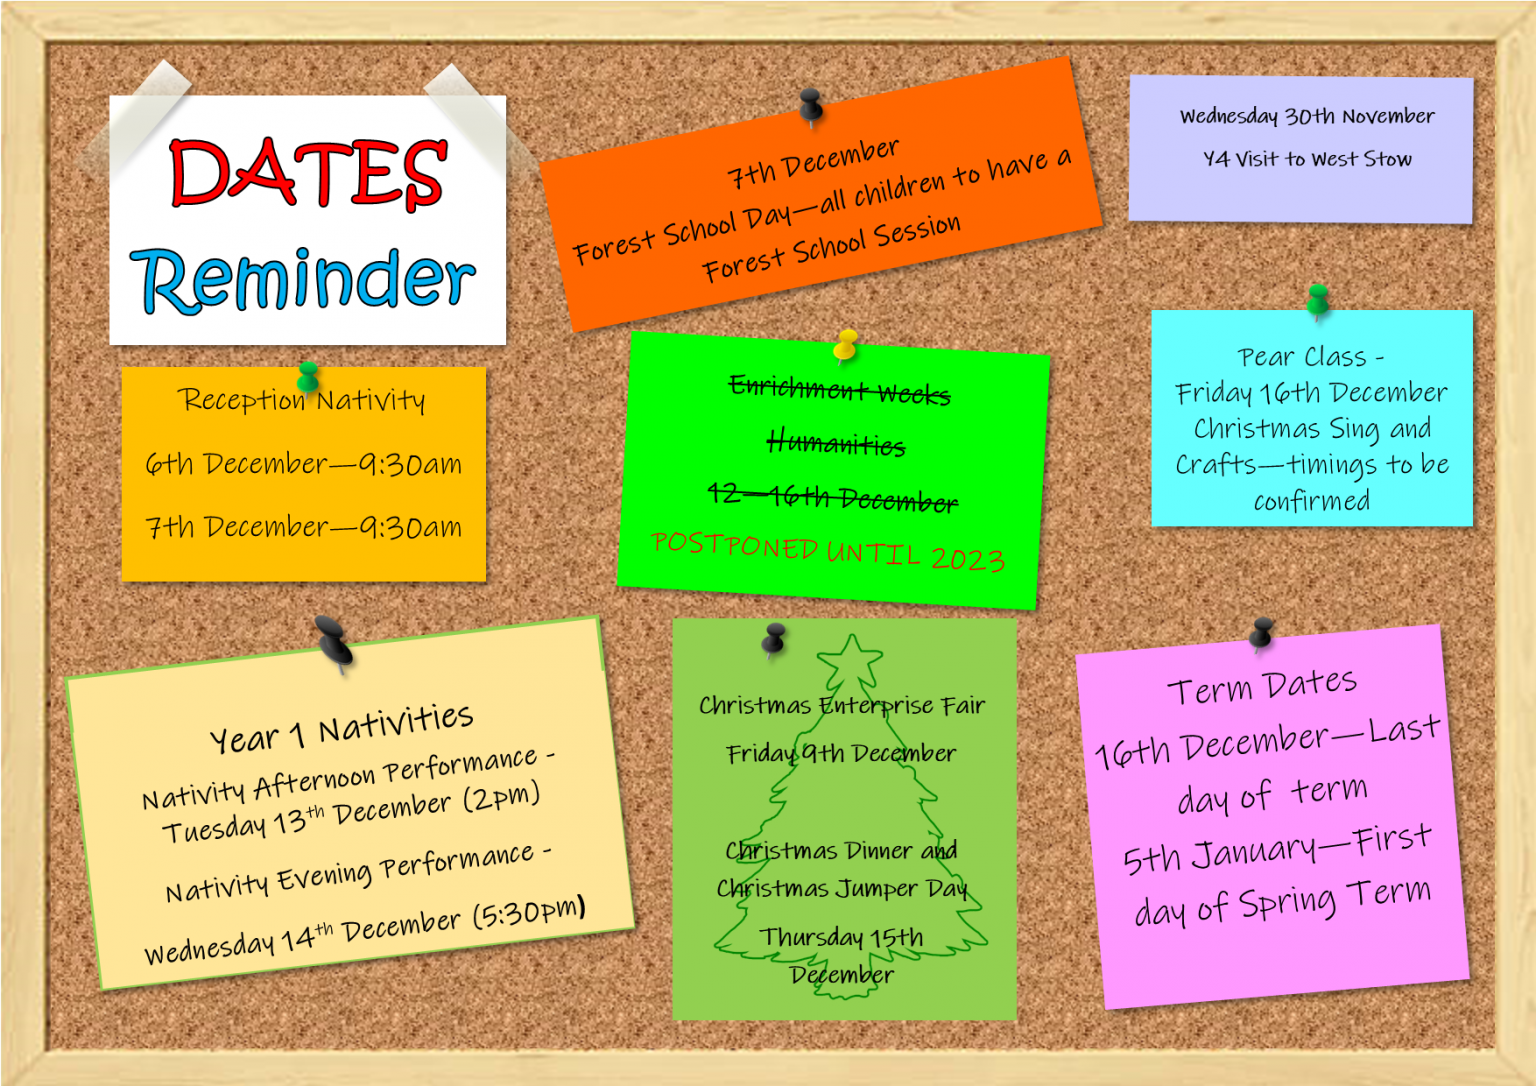 DATES
Reminder
7th December
Forest School Day—all children to have a
Forest School Session
Wednesday 30th November
Y4 Visit to West Stow
Reception Nativity
6th December—9:30am
7th December—9:30am
Enrichment Weeks
Humanities
12—16th December
POSTPONED UNTIL 2023
Pear Class -
Friday 16th December
Christmas Sing and
Crafts—timings to be
confirmed
Year 1 Nativities
Nativity Afternoon Performance -
Tuesday 13th December (2pm)
Nativity Evening Performance -
Wednesday 14th December (5:30pm)
Christmas Enterprise Fair
Friday 9th December
Christmas Dinner and
Christmas Jumper Day
Thursday 15th
December
Term Dates
16th December—Last
day of term
5th January—First
day of Spring Term